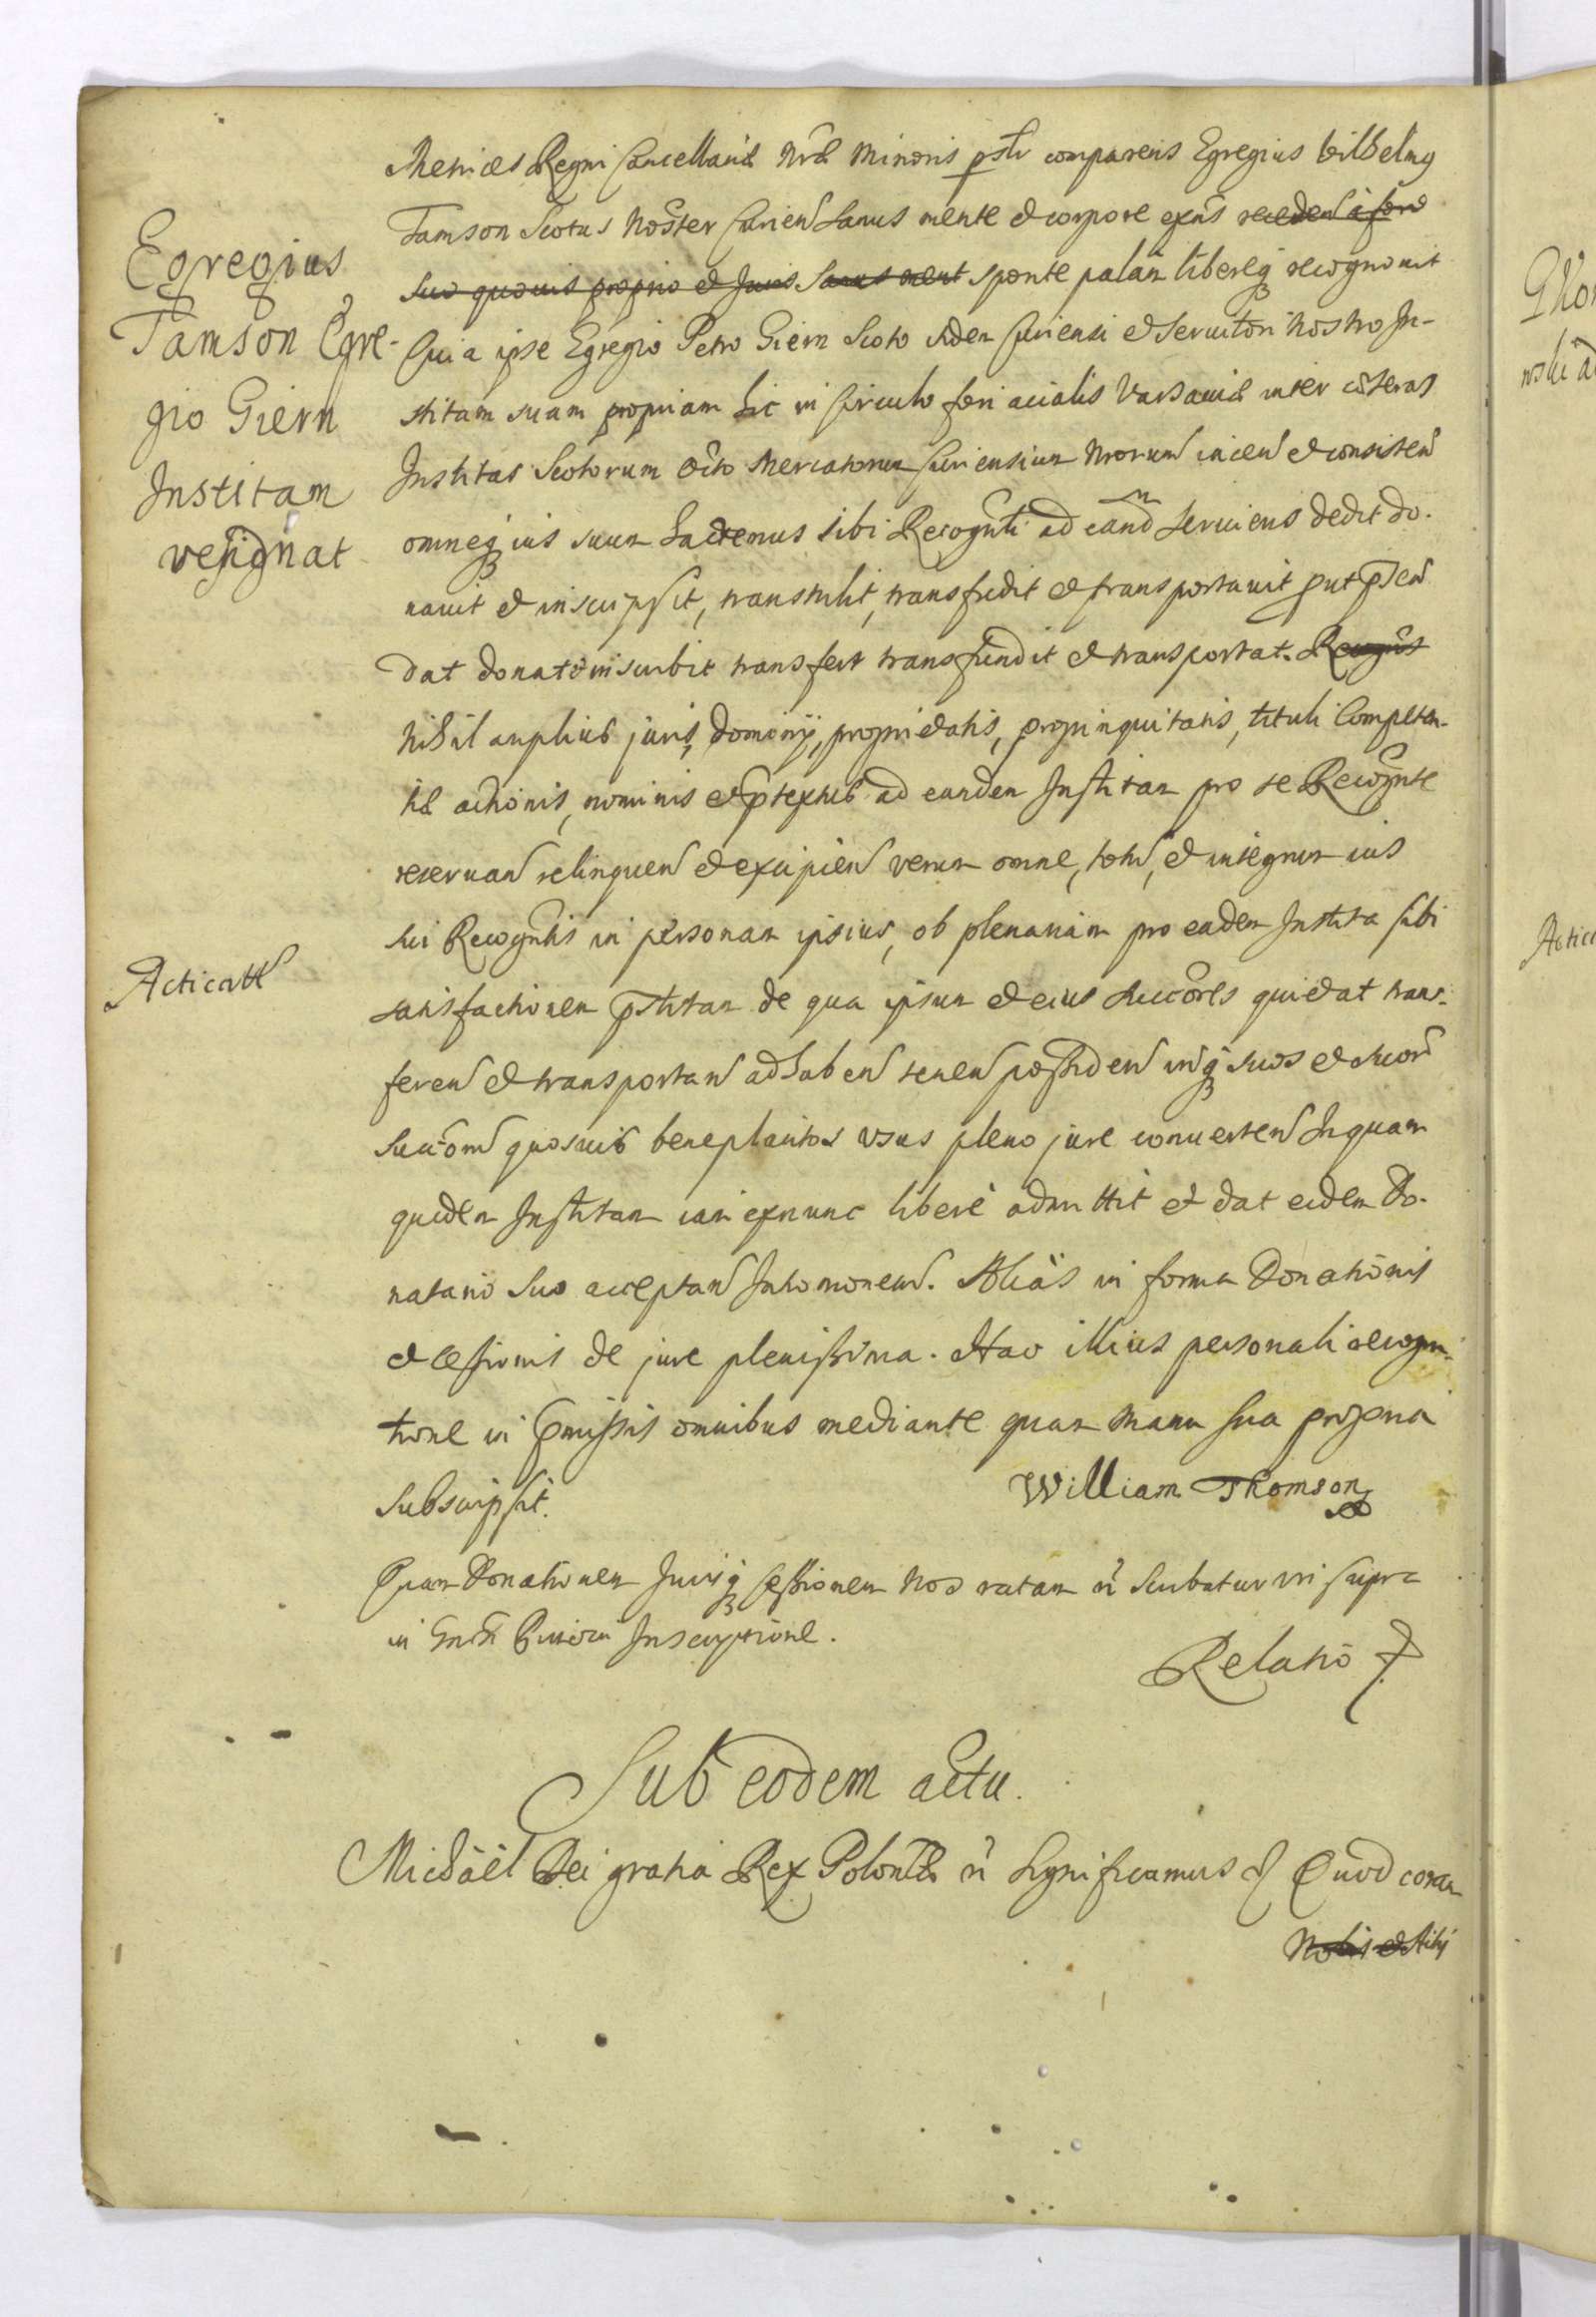 Egregius
Tamson Egre-
gio Giern
Institam
resignat
Acticatt
Metrices Regni Cancellariae Nrae Minoris psltr comparens Egregius Wilhelmus
Tamson Scotus Noster Curien Sanus mente et corpore exns receden à foro
suo quovis proprio et Juris Sanus ment sponte palam libereq recognovit
Quia ipse Egregio Petro Giern Scoto itidem Curiensi et Servitori Nostro In-
stitam suam propriam hic in Circulo fori acialis Varsaviae inter caeteras
Institas Scotorum Octo Mercatorum Curiensium Nrorum iacen et consisten
omneq ius suum hactenus sibi Recognti ad eand serviens dedit do-
navit et inscripsit, transtulit, transfudit et transportavit put psen
dat donat et inscribit transfert transfundit et transportat. Recogns
Nihil amplius juris, dominij, proprietatis, propinquitatis, tituli Competen-
tiae actionis, nominis et ptextus ad eandem Institam pro se Recognte
reservan relinquen et excipien verum omne, totu, et integrum ius
sui Recogntis in personam ipsius, ob plenariam pro eadem Instita sibi
satisfactionem pstitam de qua ipsum et eius succores quietat trans-
feren et transportan ad haben tenen possiden inq suos et suor
Succom quosvis beneplacitos usus pleno jure converten In quam
quidem Institam iam exnunc liberè admittit et dat eidem Do-
natario Suo acceptan Intromonem. Aliàs in forma Donationis
et cessionis de jure plenissima. Hac illius personali recogni-
tione in pmissis omnibus mediante quam manu sua propria
Subscripsit.
William Thomson
Quam Donationem Jurisq cessionem Nos ratam &c Scribatur uti supra
in Priori Inscriptione.
Relatio
Sub eodem actu.
Michaël Dei gratia Rex Poloniae &c Significamus &c Quod coram
Nobis et Actis